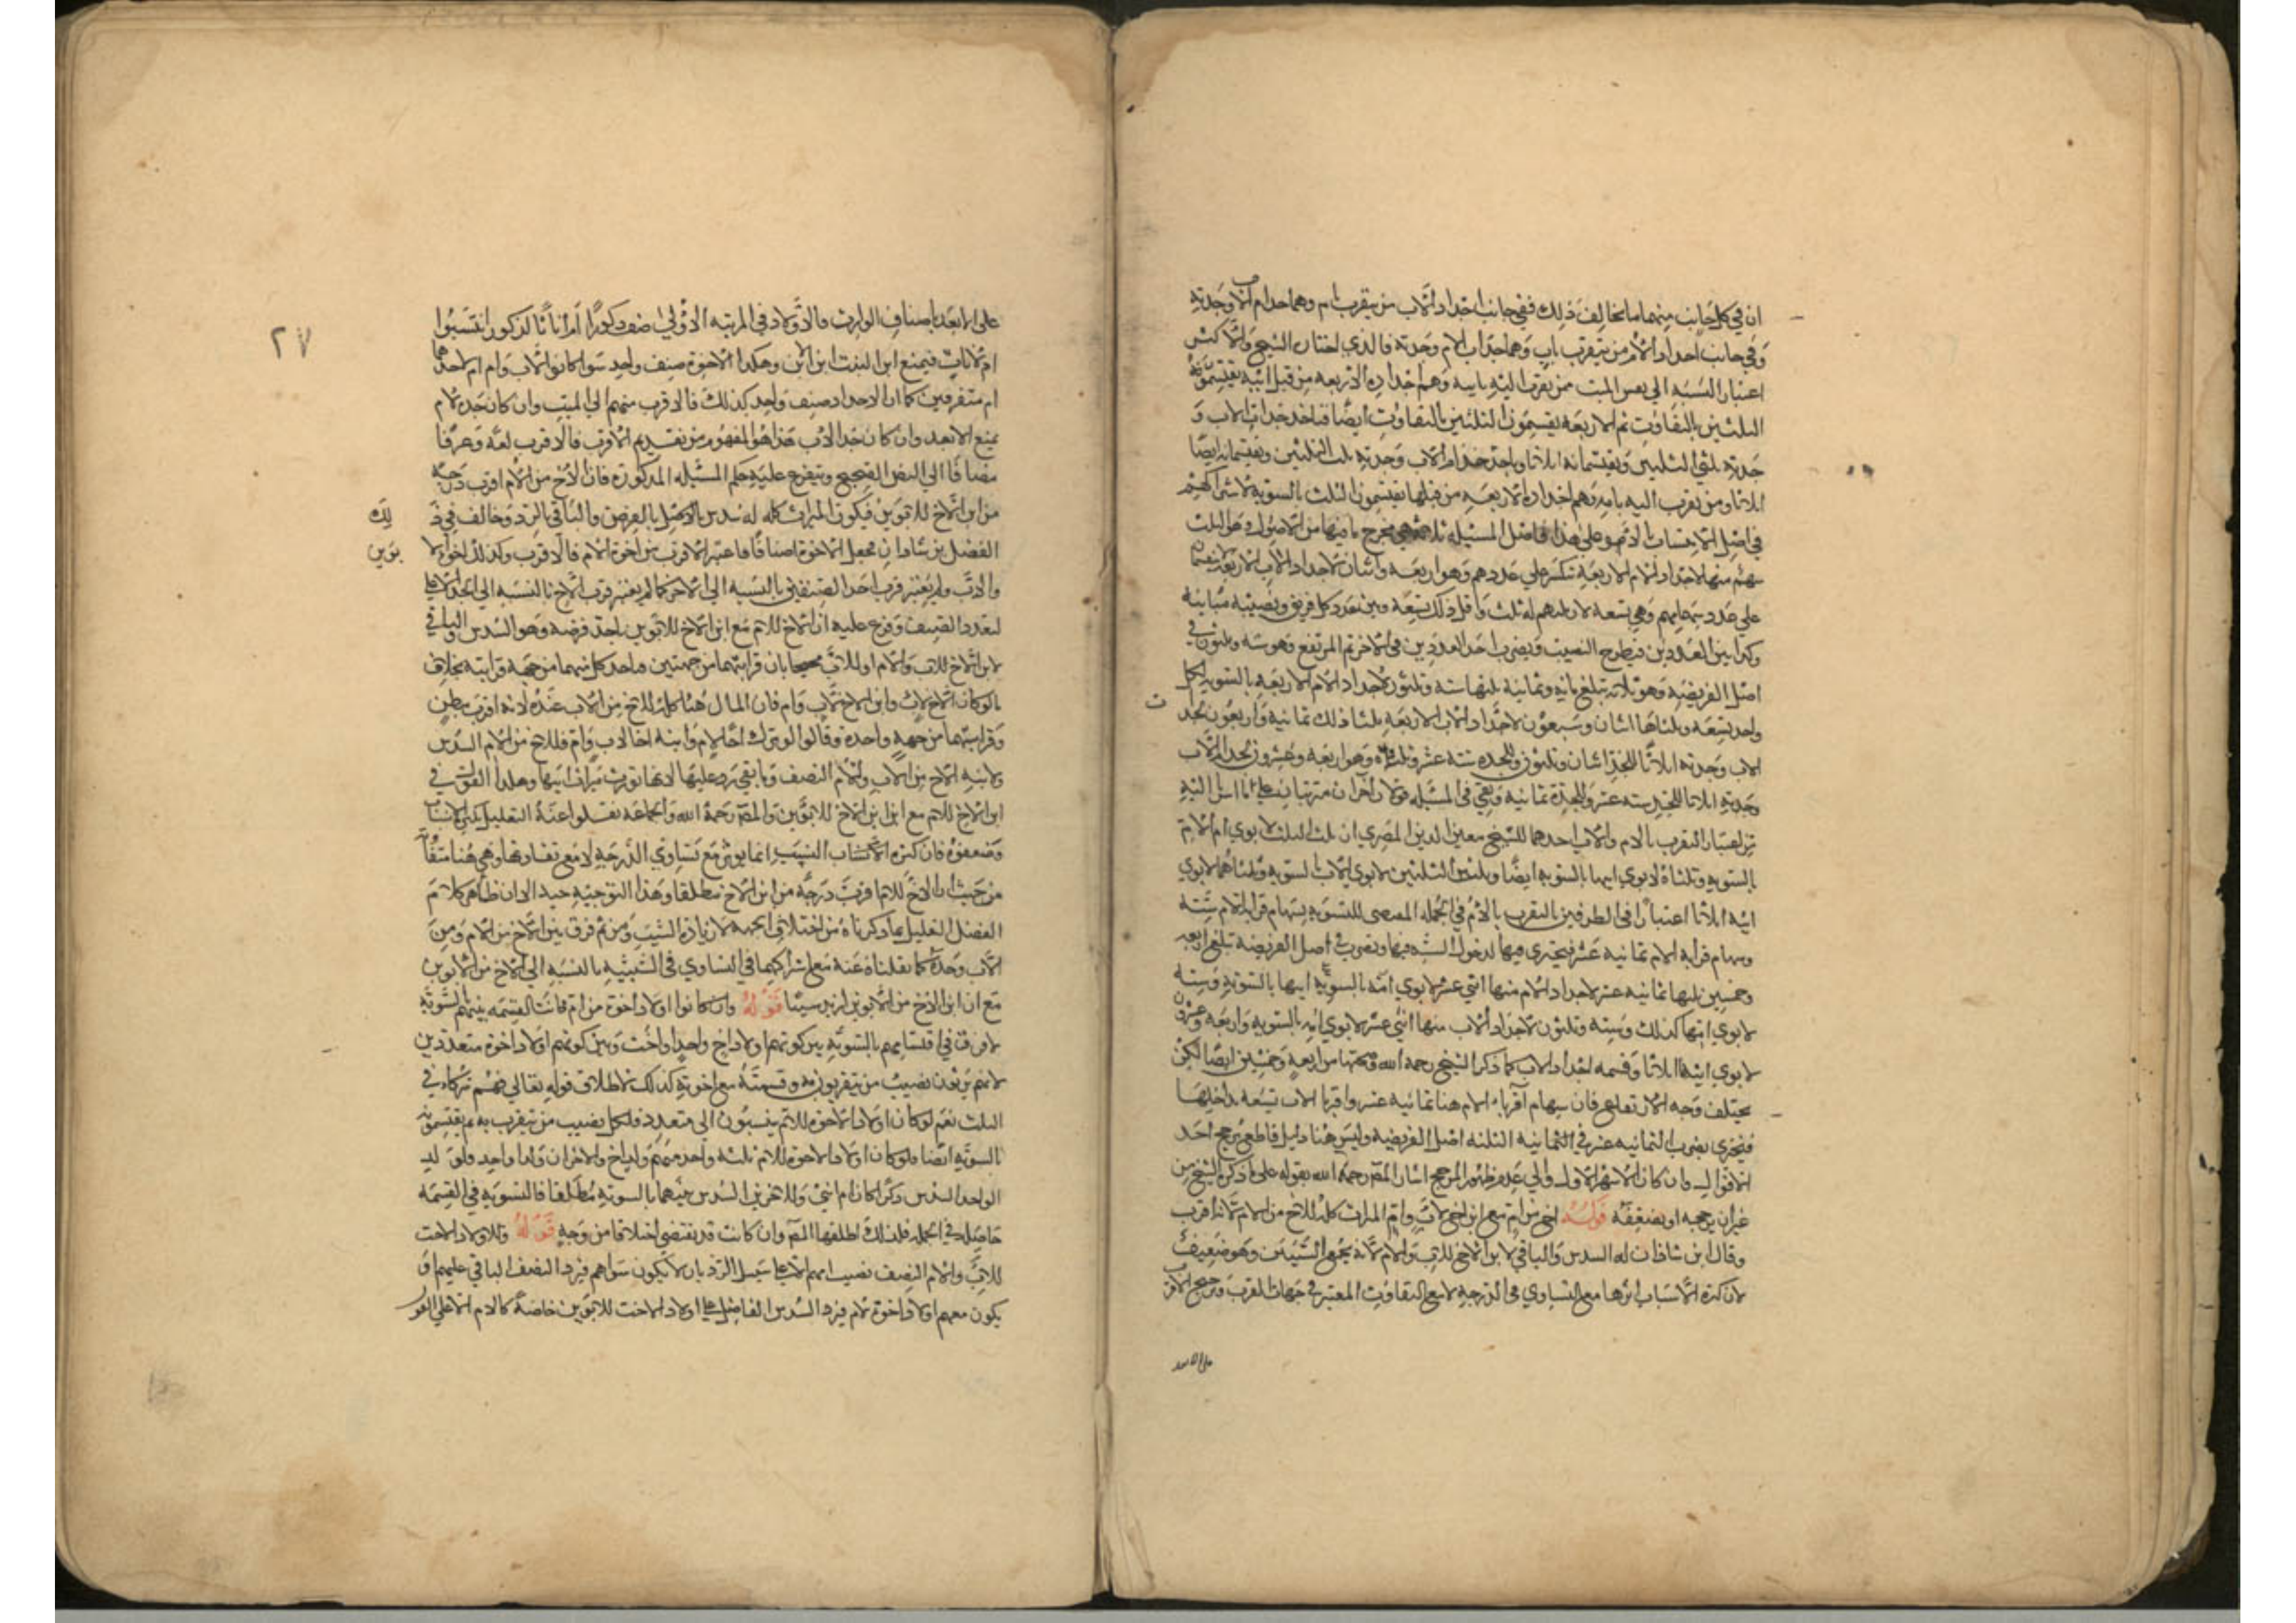 ان في كل جانب منهما ما يخالف ذلك ففي جانب اجداد الاب من يتقرب بام وهما جد ام الاب وجدته
وفي جانب اجداد الام من يتقرب باب وهما جد اب الام وجدته فالذي اختان الشيخ والاكثر
اعتبار النسبة الى نفس الميت فمن يتقرب اليه بابيه وهم اجداده الاربعه من قبل ابيه يقتسمون
الثلثين بالتفاوت ثم الاربعة يقسمون الثلثين بالتفاوت ايضا فياخذ جد اب الاب و
جدته ثلثي الثلثين ويقتسمانه اثلاثا وياخذ جد ام الاب وجدته ثلث الثلثين ويقتسمانه ايضا
اثلاثا ومن يقرب اليه بامه وهم اجداده الاربعه من قبلها يقتسمون الثلث بالسوية لاشتراكهم
في اصل الانتساب بالام وعلى هذا فاصل المسيله ثلثه هي مخرج ما فيها من الاصول وهو الثلث
سهم منها لاجداد الام الاربعة تنكسر على عددهم وهو اربعه واثنان لاجداد الاب الاربعة لا ينقسمان
على عدد سهامهم وهي تسعه لان ثلثهم له ثلث واقل ذلك تسعة وبين عدد كل فريق ونصيبه مباينة
وكذا بين العددين فيطرح النصيب ويضرب احد العددين في الاخر ثم المرتفع وهو سته وثلثون في
اصل الفريضه وهو ثلاثه تبلغ مايه وثمانية ثلثها سته وثلثون لاجداد الام الاربعه بالسويه لكل
واحد تسعه وثلثاها اثنان وسبعون لاجداد الاب الاربعه ثلثا ذلك ثمانيه واربعون لجد
الاب وجدته اثلاثا للجد اثنان وثلثون وللجده سته عشر وثلثه وهو اربعه وعشرون لجد ام الاب
وجدته اثلاثا للجد سته عشر وللجدة ثمانيه وبقي في المسئله قولان آخران مترتبان على ما اسلفنا اليه
من اعتبار التقرب بالام والاب احدهما للشيخ معين الدين المصري ان ثلث الثلث لابوي ام الام
بالسويه وثلثاه لابوي ابيها بالسويه ايضا وثلث الثلثين لابوي ام الاب بالسويه وثلثاهما لابوي
ابيه اثلاثا اعتبارا في الطرفين بالتقرب بالام في الجمله المقتضي للتسويه فسهام قرابة الام سته
وسهام قرابه الام ثمانيه عشر فيجتزى بها لدخول الستة فيها ويضرب في اصل الفريضه تبلغ اربعه
وخمسين ثلثها ثمانيه عشر لاجداد الام منها اثني عشر لابوي امه بالسويه ابيها بالسويه وسته
لابوي امها كذلك وسته وثلثون لاجداد الاب منها اثني عشر لابوي امه بالسويه واربعه وعشرون
لابوي ابيه اثلاثا وقسمه اجداد الاب كما ذكر الشيخ رحمه الله فصحتها من اربعه وخمسين ايضا لكن
يختلف وجه الارتفاع فان سهام اقرباء الام هنا ثمانيه عشر واقربا الاب تسعه تداخلها
فيجتزى بضرب الثمانيه عشر في الثلثه اصل الفريضه وليس هنا دليل قاطع يرجح احد
الاقوال وان كان الاشهر الاول والى عدم ظهور المرجح اشار المصـ رحمه الله بقوله على ما ذكره الشيخ من
غير ان يرجحه او يضعفه قوله اخ من ام مع ابن اخ لاب وام الميراث كله للاخ من الام لانه اقرب
وقال ابن شاذان له السدس والباقي لابن الاخ للاب والام لانه يجمع السببين وهو ضعيف
لان كثره الاسباب اثرها مع التساوي في الدرجه لا مع التفاوت المعتبر في جهات القرب وترجيح الاقرب
على الابعد
٢٧
على الابعد باصناف الوارث فالاولاد في المرتبه الاولى صنف ذكورا ام اناثا لذكور انتسبوا
ام لاناث فيمنع ابن البنت ابن ابن الابن وهكذا الاخوة صنف واحد سوا كانوا لاب وام ام لاحدهما
ام متفرقين كما ان الاجداد صنف واحد كذلك فالاقرب منهم الى الميت وان كان جده لام
يمنع الابعد وان كان جدا لاب هذا هو المفهوم من تقديم الاقرب فالاقرب لغة وعرفا
مضافا الى النص الصحيح ويتفرع عليه حكم المسئله المذكورة فان الاخ من الام اقرب درجه
من ابن الاخ للابوين فيكون الميراث كله له سدس بالاصل بالفرض والباقي بالرد وخالف في ذ
لك
الفضل بن شاذان فجعل الاخوة اصنافا فاعتبر الاقرب من اخوة الام فالاقرب وكذلك اخوة الا
بوين
والاب ولم يعتبر قرب احد الصنفين بالنسبه الى الاخر كما لم يعتبر قرب الاخ بالنسبه الى الجد الاعلى
لتعدد الصنف وفرع عليه ان الاخ للام مع ابن الاخ للابوين ياخذ فرضه وهو السدس والباقي
لابن الاخ للاب والام او للاب محتجا بان قرابتهما من جهتين فياخذ كل منهما من جهة قرابته بخلاف
ما لو كان الاخ لاب وابن الاخ لاب وام فان المال هنا كله للاخ من الاب عنده لانه اقرب ببطن
وقرابتهما من جهة واحدة وقال لو ترك اخا لام وابنة اخ لاب وام فللاخ من الام السدس
ولابنه الاخ من الاب والام النصف وما بقي يرد عليها لانها تورث ميراث ابيها وهكذا القول في
ابن الاخ للام مع ابن ابن الاخ للابوين والمصـ رحمة الله والجماعة نقلوا عنه التعليل بكثرة الاسباب
وضعفوه فان كثره الاسباب انما يوثر مع تساوي الدرجة لا مع تفاوتها وهي هنا متفاوته
من حيث ان الاخ للام اقرب درجة من ابن الاخ مطلقا وهذا التوجيه جيد الا ان ظاهر كلام
الفضل التعليل بما ذكرناه من اختلاف الجهة لا زياده السبب ومن ثم فرق بين الاخ من الام ومن
الاب وحده كما نقلناه عنه مع اشتراكهما في التساوي في النسبة بالنسبة الى الاخ من الابوين
مع ان ابن الاخ من الابوين ازيد سببا قوله وان كانوا اولاد اخوة من ام كانت القسمه بينهم بالسوية
لا فرق في اقتسامهم بالسويه بين كونهم اولاد اخ واحد او اخت وبين كونهم اولاد اخوة متعددين
لانهم يرثون نصيب من يتقربون به وقسمته مع اخوته كذلك لاطلاق قوله تعالى فهم شركاء في
الثلث نعم لو كان اولاد الاخوه للام ينسبون الى متعدد فلكل نصيب من يتقرب به ثم يقتسمونه
بالسويه ايضا فلو كان اولاد الاخوة للام ثلثه واحد منهم ولد اخ والاخران ولدا واحد فلولد
الواحد السدس ذكرا كان ام انثى وللاخرين السدس بينهما بالسويه مطلقا فالتسويه في القسمه
حاصله في الجملة فلذلك اطلقها المصـ وان كانت قد تقتضي اختلافا من وجه قوله ولاولاد الاخت
للاب والام النصف نصيب امهم الا على سبيل الرد بان لا يكون سواهم فيرد النصف الباقي عليهم او
يكون معهم اولاد اخوة لام فيرد السدس الفاضل على اولاد الاخت للابوين خاصة كالام الا على القول